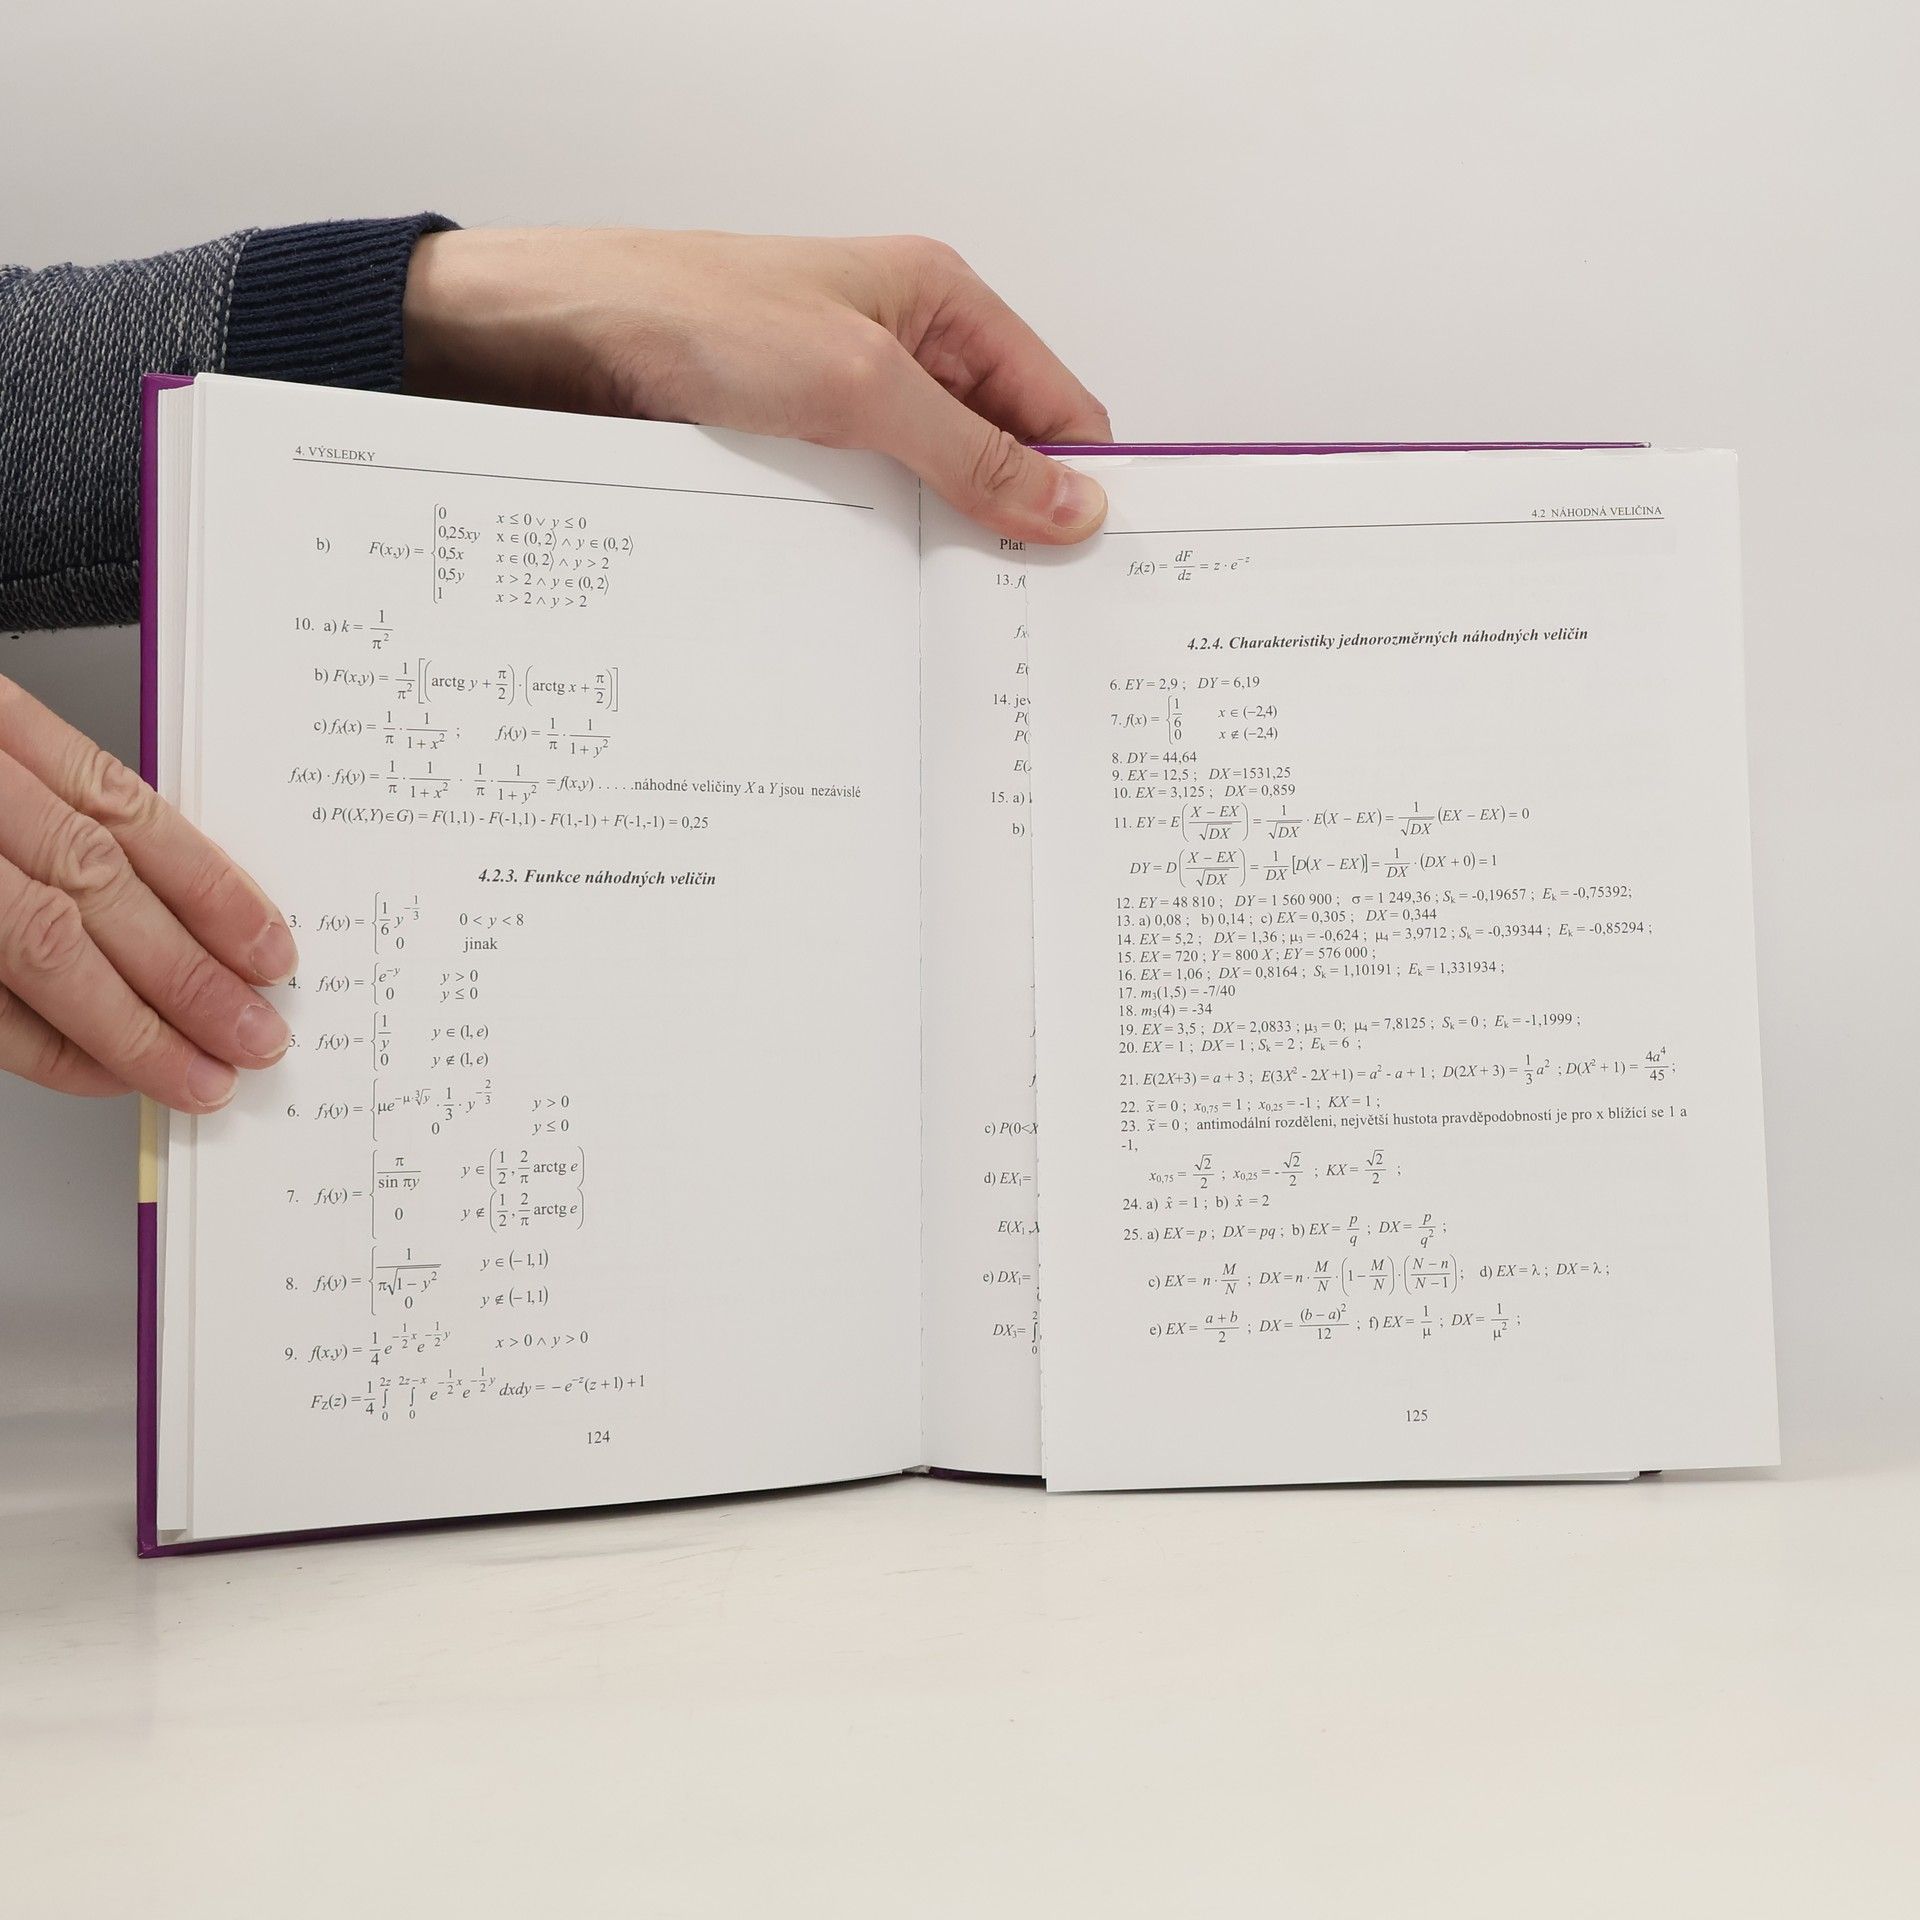 4. VÝSLEDKY
b) F(x,y) = { 0 x ≤ 0 ∨ y ≤ 0
0,25xy x ∈ (0, 2⟩ ∧ y ∈ (0, 2⟩
0,5x x ∈ (0, 2⟩ ∧ y > 2
0,5y x > 2 ∧ y ∈ (0, 2⟩
1 x > 2 ∧ y > 2
10. a) k = 1/π²
b) F(x,y) = 1/π² [(arctg y + π/2) · (arctg x + π/2)]
c) fX(x) = 1/π · 1/(1 + x²) ; fY(y) = 1/π · 1/(1 + y²)
fX(x) · fY(y) = 1/π · 1/(1 + x²) · 1/π · 1/(1 + y²) = f(x,y) . . . . .náhodné veličiny X a Y jsou nezávislé
d) P((X,Y)∈G) = F(1,1) - F(-1,1) - F(1,-1) + F(-1,-1) = 0,25
4.2.3. Funkce náhodných veličin
3. fY(y) = { 1/6 y^(-1/3) 0 < y < 8
0 jinak
4. fY(y) = { e^(-y) y > 0
0 y ≤ 0
5. fY(y) = { 1/y y ∈ (1, e)
0 y ∉ (1, e)
6. fY(y) = { μe^(-μ·∛y) · 1/3 · y^(-2/3) y > 0
0 y ≤ 0
7. fY(y) = { π/(sin πy) y ∈ (1/2, 2/π arctg e)
0 y ∉ (1/2, 2/π arctg e)
8. fY(y) = { 1/(π√(1 − y²)) y ∈ (−1, 1)
0 y ∉ (−1, 1)
9. f(x,y) = 1/4 e^(-1/2 x) e^(-1/2 y) x > 0 ∧ y > 0
FZ(z) = 1/4 ∫₀^(2z) ∫₀^(2z−x) e^(-1/2 x) e^(-1/2 y) dxdy = − e^(−z)(z + 1) + 1
124
Plat
13. f(
fX
E(
14. jev
P(
P(
E(
15. a)
b)
c) P(0<X
d) EX₁=
E(X₁,X
e) DX₁=
DX₃= ∫₀²
4.2 NÁHODNÁ VELIČINA
fZ(z) = dF/dz = z · e^(−z)
4.2.4. Charakteristiky jednorozměrných náhodných veličin
6. EY = 2,9 ; DY = 6,19
7. f(x) = { 1/6 x ∈ (−2,4)
0 x ∉ (−2,4)
8. DY = 44,64
9. EX = 12,5 ; DX =1531,25
10. EX = 3,125 ; DX = 0,859
11. EY = E((X − EX)/√DX) = 1/√DX · E(X − EX) = 1/√DX (EX − EX) = 0
DY = D((X − EX)/√DX) = 1/DX [D(X − EX)] = 1/DX · (DX + 0) = 1
12. EY = 48 810 ; DY = 1 560 900 ; σ = 1 249,36 ; Sk = -0,19657 ; Ek = -0,75392;
13. a) 0,08 ; b) 0,14 ; c) EX = 0,305 ; DX = 0,344
14. EX = 5,2 ; DX = 1,36 ; μ₃ = -0,624 ; μ₄ = 3,9712 ; Sk = -0,39344 ; Ek = -0,85294 ;
15. EX = 720 ; Y = 800 X ; EY = 576 000 ;
16. EX = 1,06 ; DX = 0,8164 ; Sk = 1,10191 ; Ek = 1,331934 ;
17. m₃(1,5) = -7/40
18. m₃(4) = -34
19. EX = 3,5 ; DX = 2,0833 ; μ₃ = 0; μ₄ = 7,8125 ; Sk = 0 ; Ek = -1,1999 ;
20. EX = 1 ; DX = 1 ; Sk = 2 ; Ek = 6 ;
21. E(2X+3) = a + 3 ; E(3X² - 2X +1) = a² - a + 1 ; D(2X + 3) = 1/3 a² ; D(X² + 1) = 4a⁴/45 ;
22. x̃ = 0 ; x₀,₇₅ = 1 ; x₀,₂₅ = -1 ; KX = 1 ;
23. x̃ = 0 ; antimodální rozdělení, největší hustota pravděpodobností je pro x blížící se 1 a
-1,
x₀,₇₅ = √2/2 ; x₀,₂₅ = -√2/2 ; KX = √2/2 ;
24. a) x̂ = 1 ; b) x̂ = 2
25. a) EX = p ; DX = pq ; b) EX = p/q ; DX = p/q² ;
c) EX = n · M/N ; DX = n · M/N · (1 − M/N) · ((N − n)/(N − 1)) ; d) EX = λ ; DX = λ ;
e) EX = (a + b)/2 ; DX = (b − a)²/12 ; f) EX = 1/μ ; DX = 1/μ² ;
125